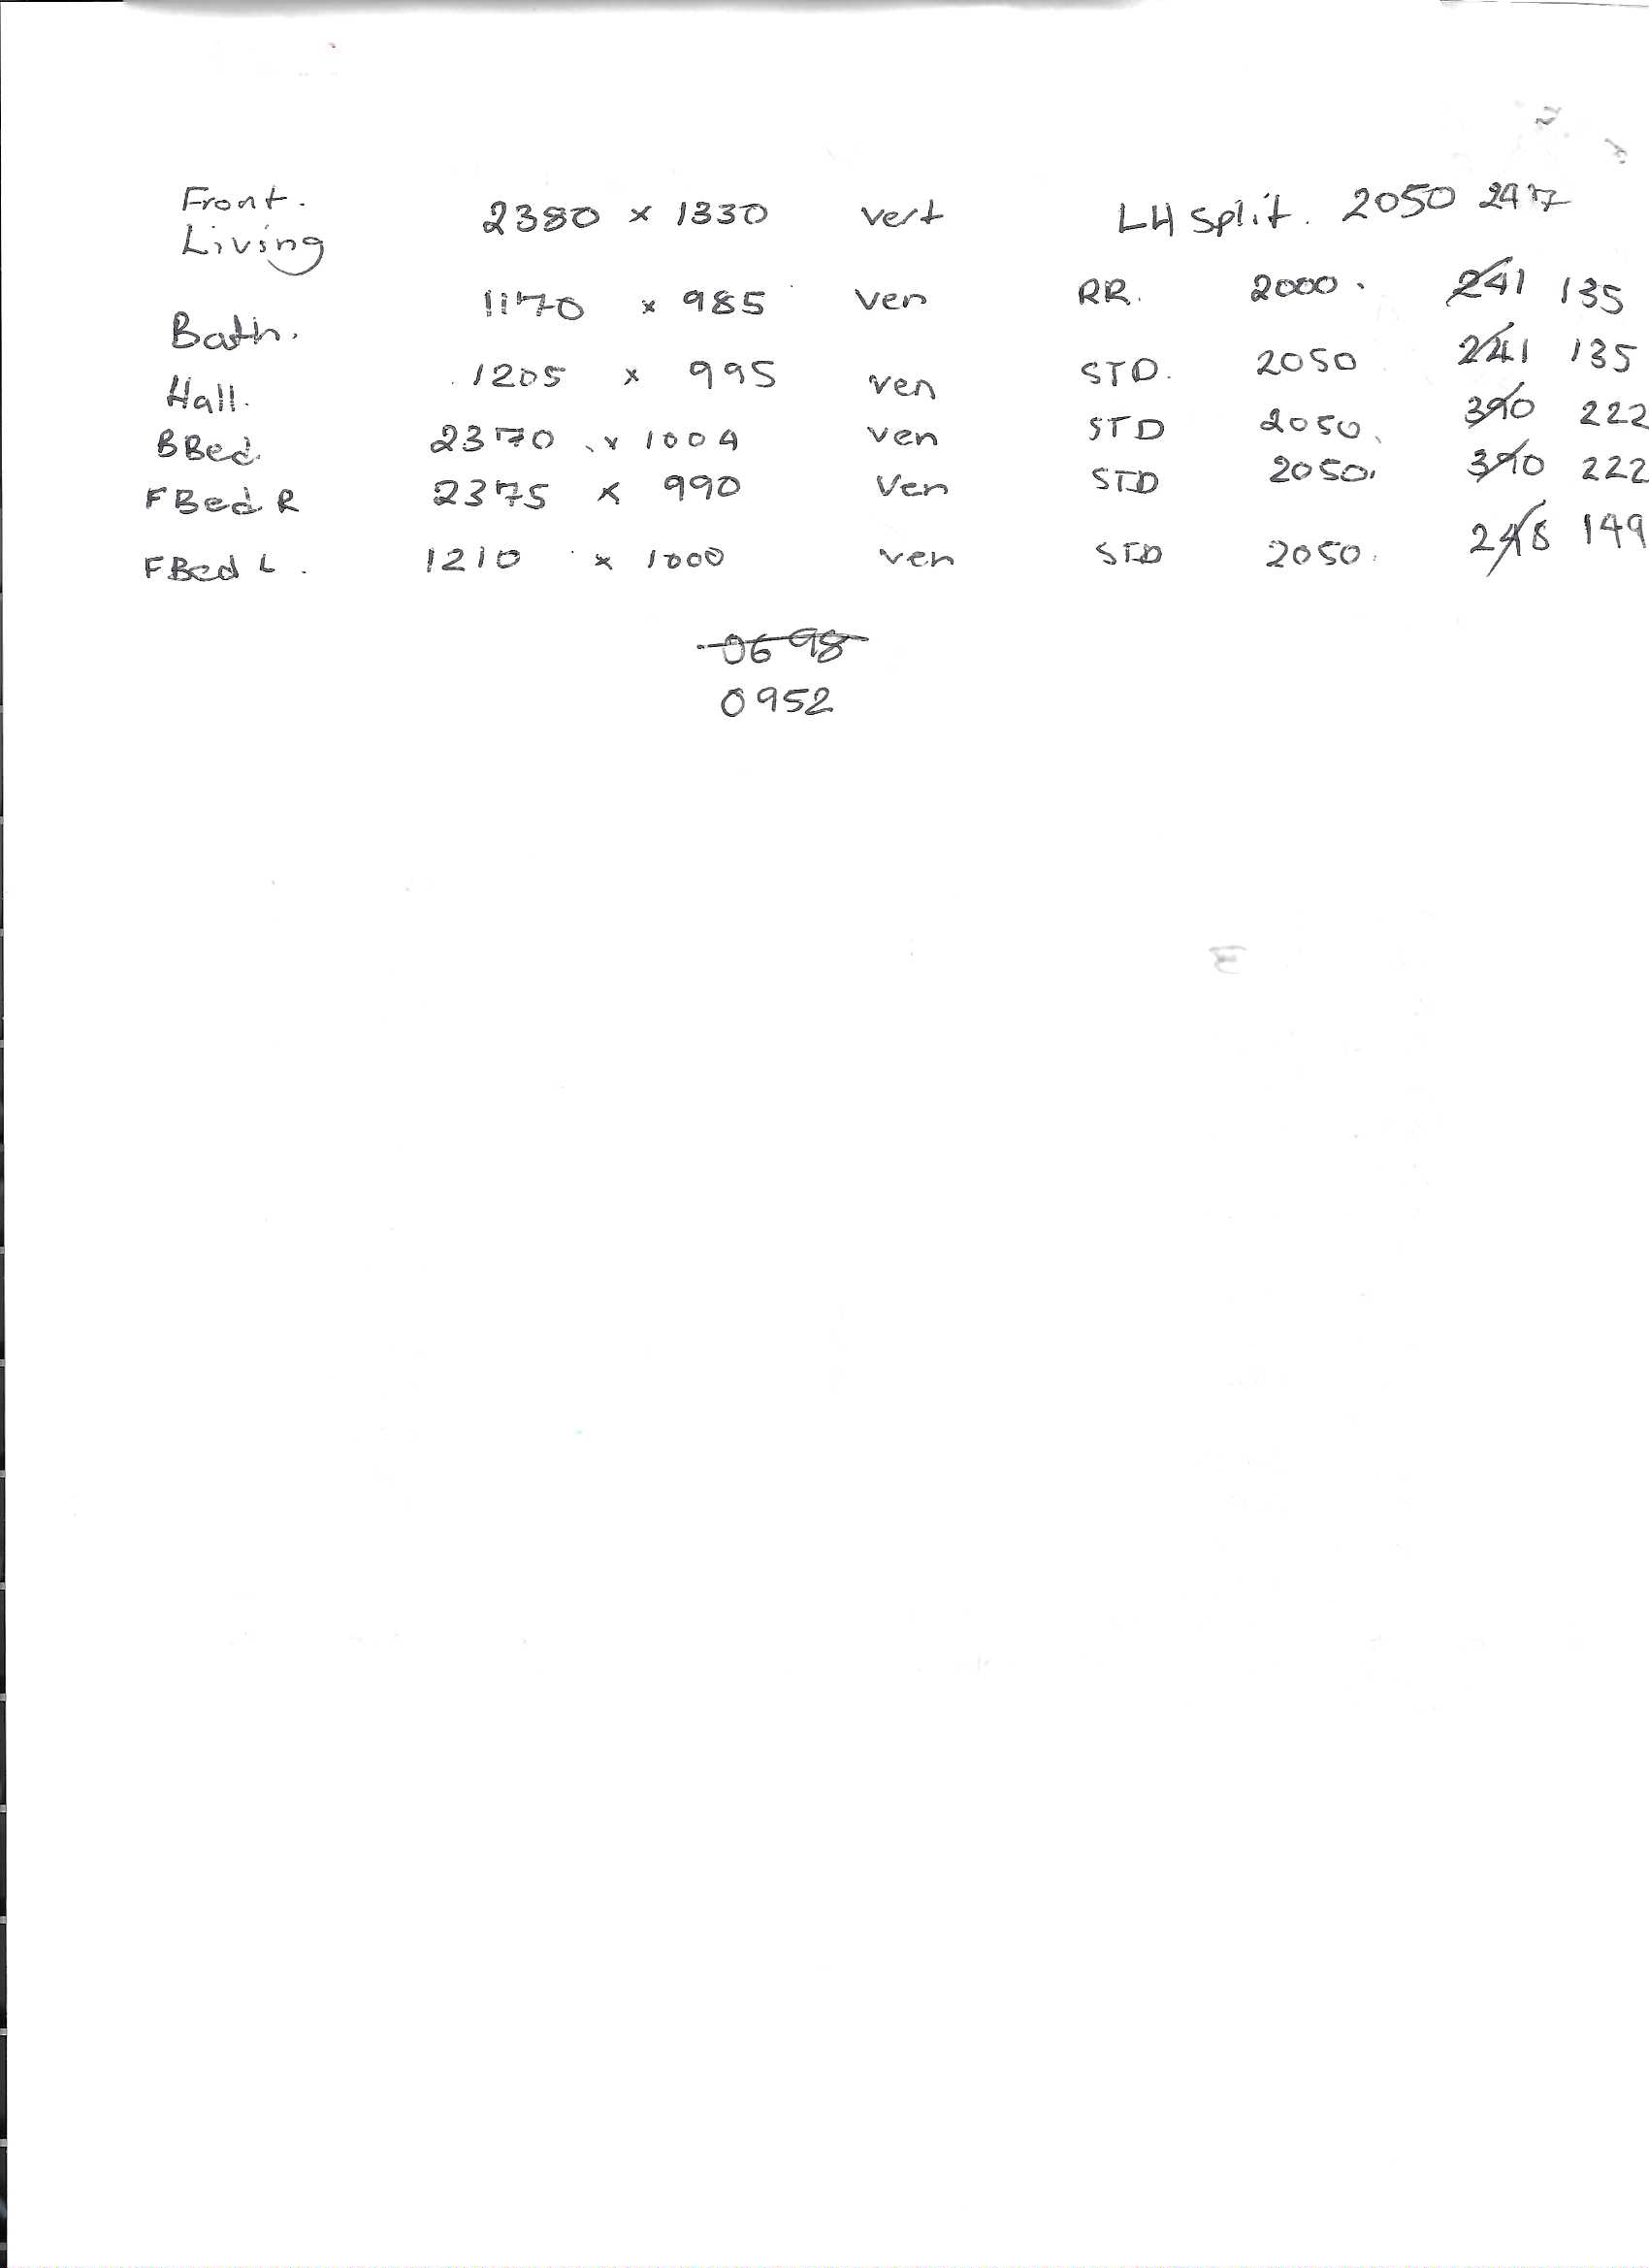 Front.
Living 2380 x 1330 vert LH Split. 2050 297
Bath. 1170 x 985 ven RR. 2000. 241 135
Hall. 1205 x 995 ven STD. 2050 241 135
BBed. 2370 x 1004 ven STD 2050. 390 222
FBed R 2375 x 990 Ven STD 2050. 390 222
FBed L. 1210 x 1000 ven STD 2050. 248 149
0698
0952